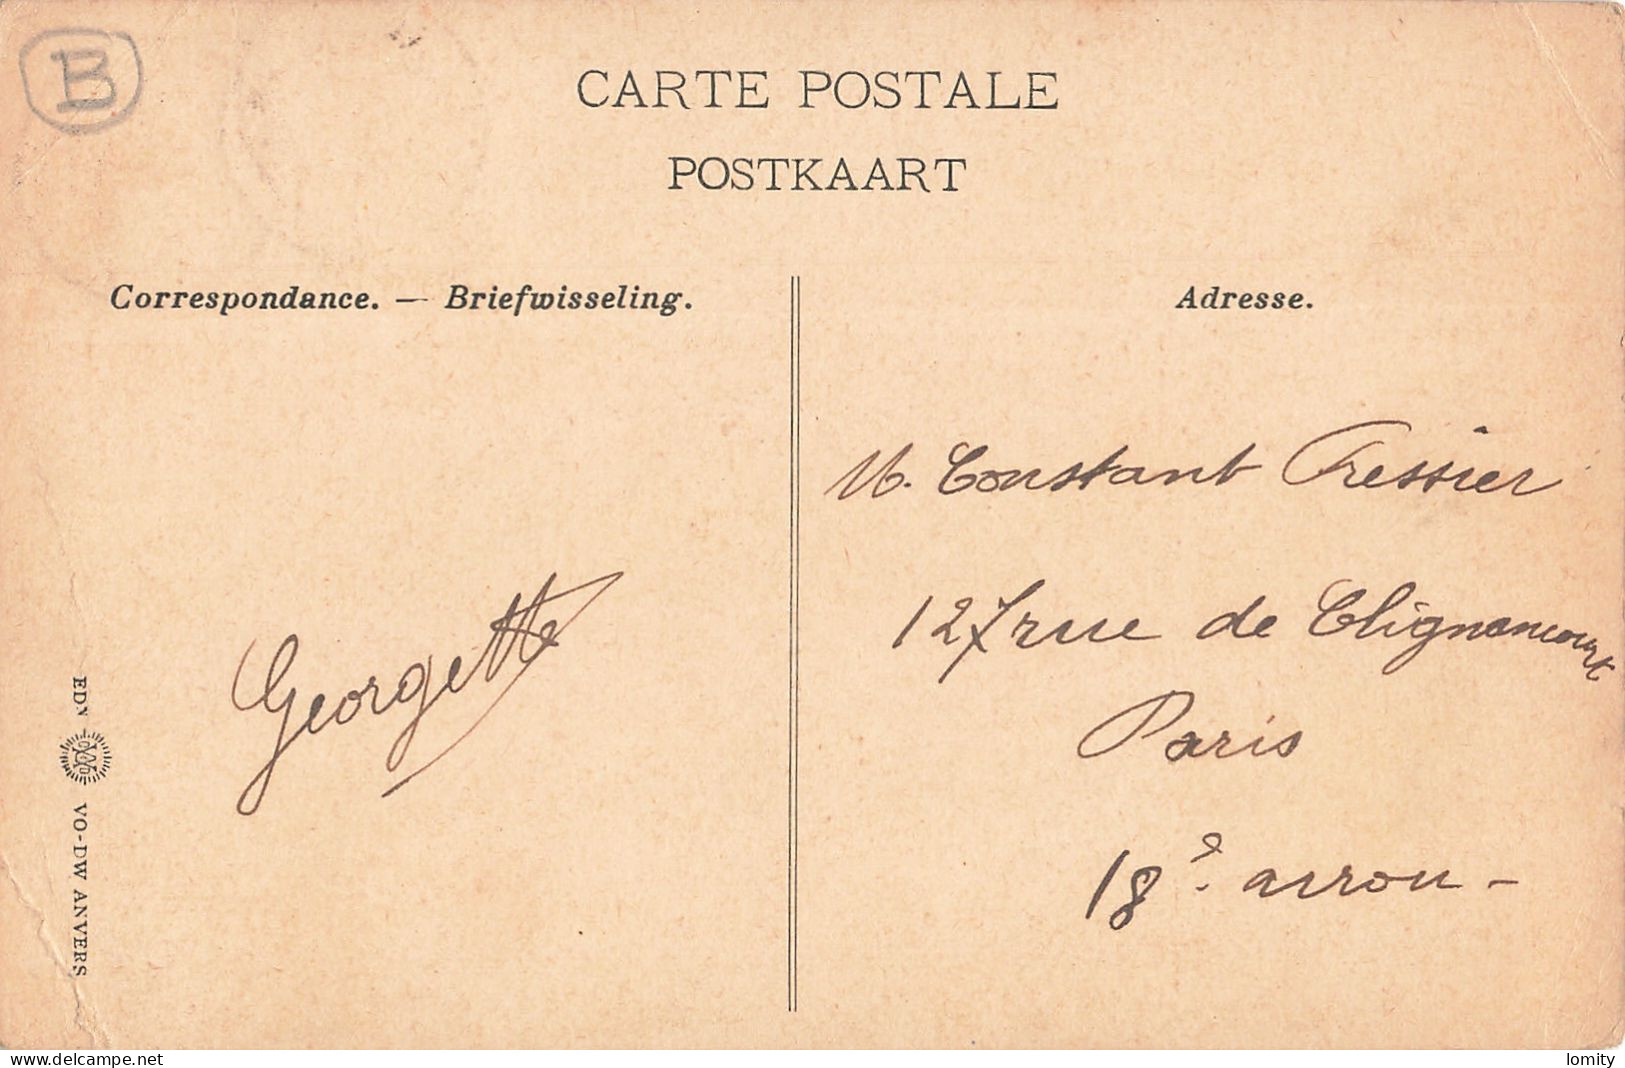 B
CARTE POSTALE
POSTKAART
Correspondance. — Briefwisseling.
Georgette
EDN VO-DW ANVERS
Adresse.
M. Constant Tessier
127 rue de Clignancourt
Paris
18e arron-
www.delcampe.net
lomity